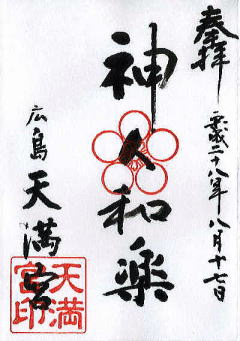 奉拝
平成二十八年八月十七日
神人和楽
広島天満宮
天満
宮印